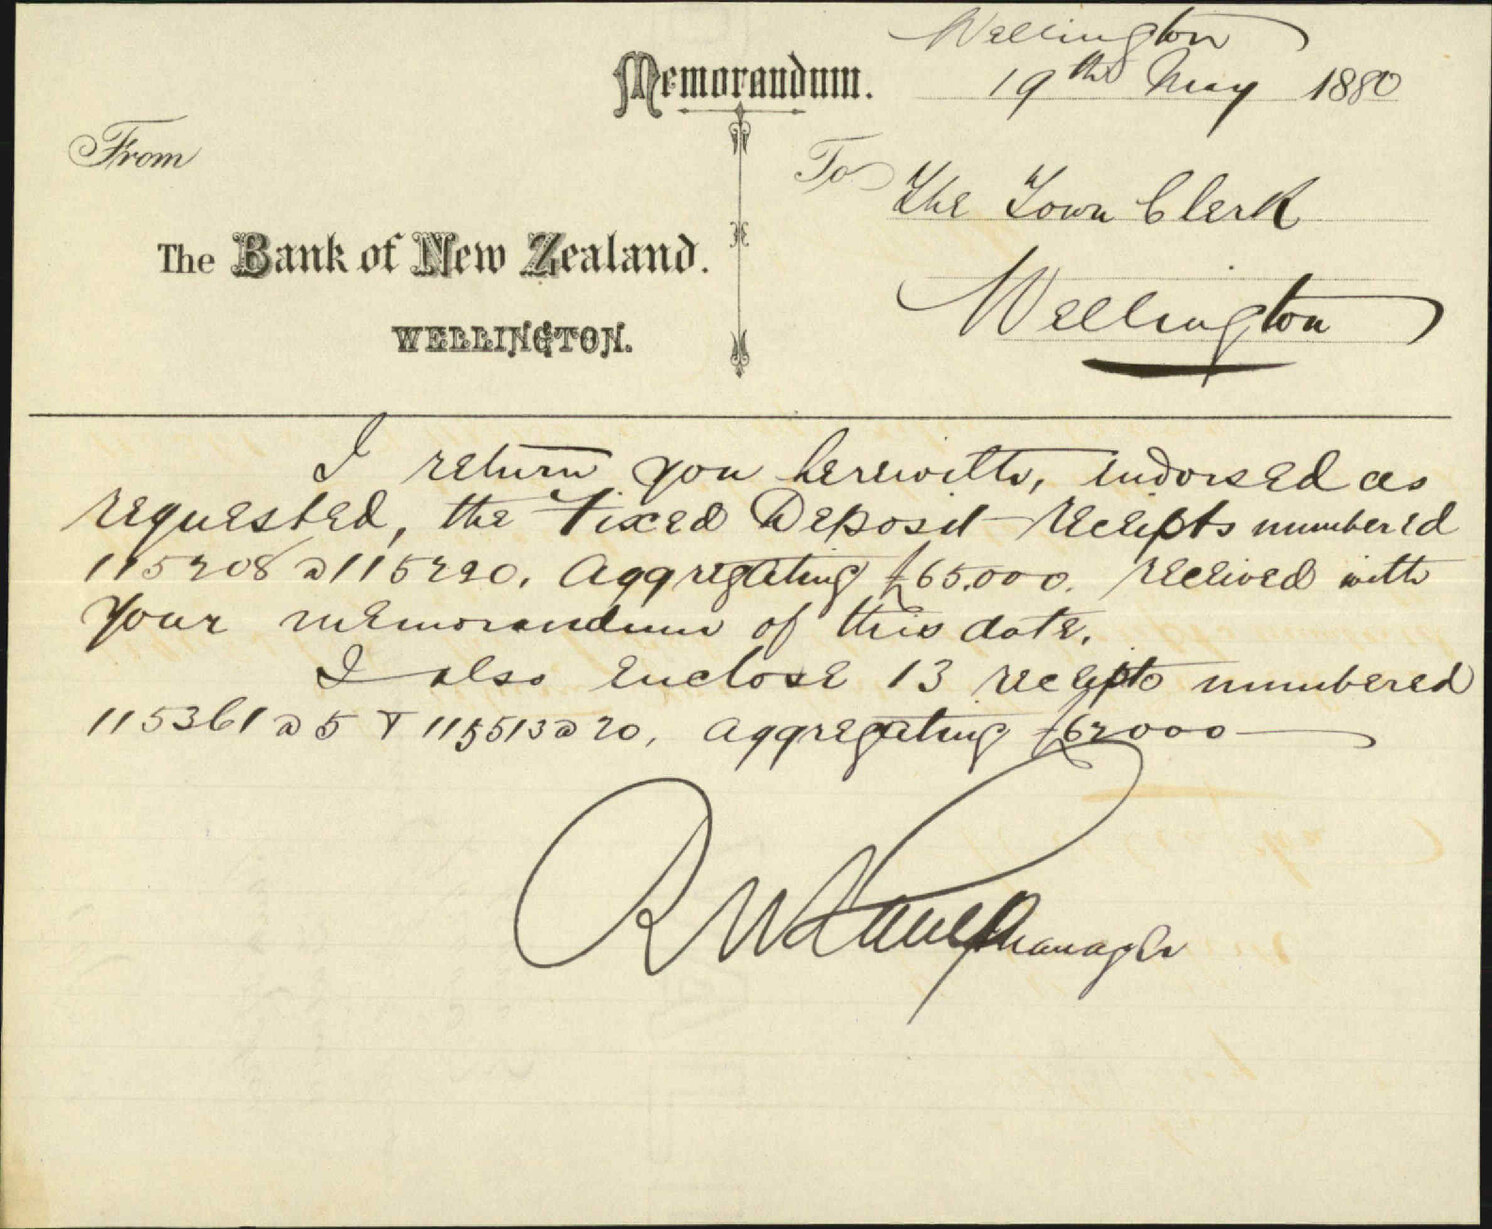 Memorandum.
Wellington
19th May 1880
From
The Bank of New Zealand.
WELLINGTON.
To The Town Clerk
Wellington
I return you herewith, endorsed as
requested, the Fixed Deposit receipts numbered
115208 @ 115220, aggregating £65.000. received with
your memorandum of this date.
I also enclose 13 receipts numbered
115361 @ 5 & 115513 @ 20, aggregating £62000
R W Manager